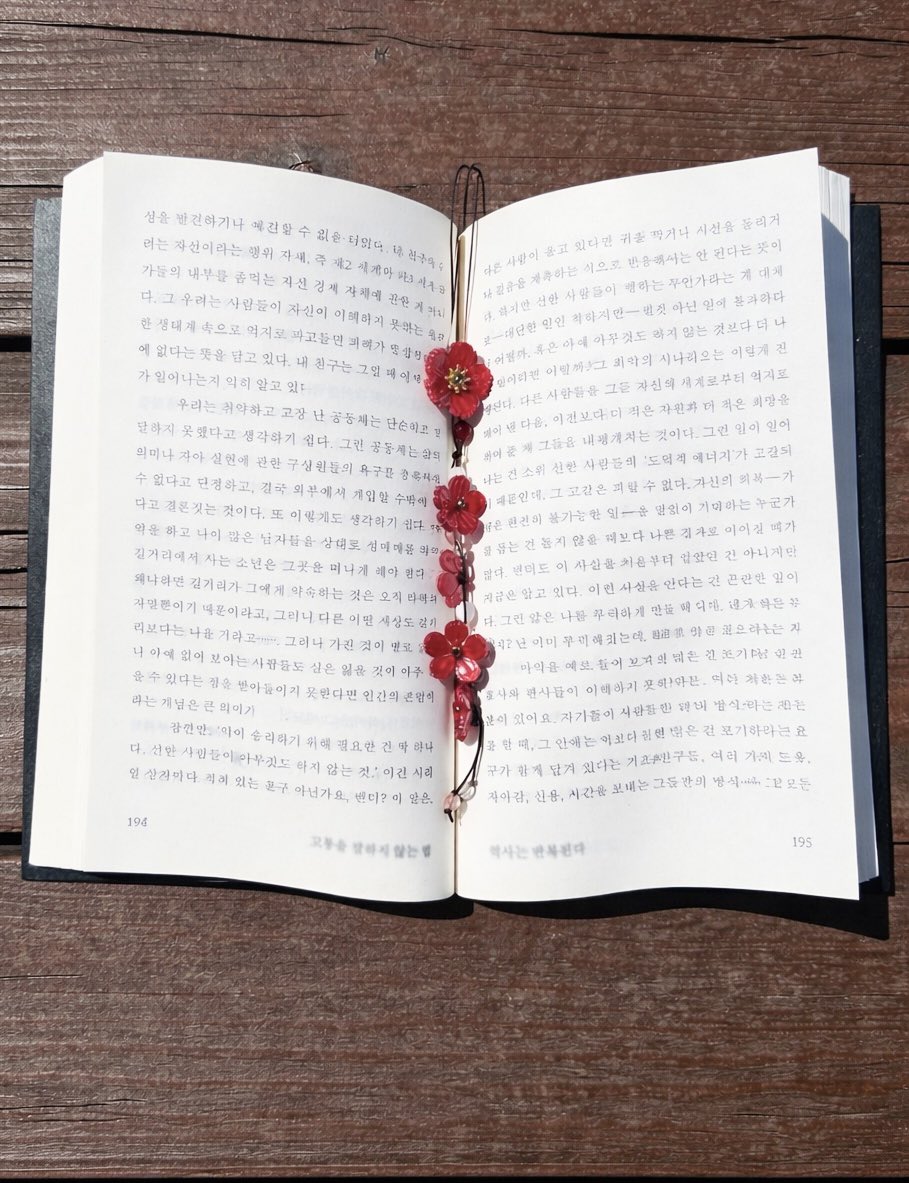 성을 발견하거나 예견할 수 없을
려는 자선이라는 행위 자체, 즉 제2 세계나 제3
가들의 내부를 좀먹는 자선 경제 자체에
다. 그 우려는 사람들이 자신이 이해하지 못하는
한 생태계 속으로 억지로 파고들면 피해가
에 없다는 뜻을 담고 있다. 내 친구는 그럴 때
가 일어나는지 익히 알고 있다
우리는 취약하고 고장 난 공동체는 단순히
달하지 못했다고 생각하기 쉽다. 그런 공동체는 삶의
의미나 자아 실현에 관한 구성원들의 욕구를 충족시킬
수 없다고 단정하고, 결국 외부에서 개입할 수밖에
다고 결론짓는 것이다. 또 이렇게도 생각하기 쉽다.
약을 하고 나이 많은 남자들을 상대로 성매매를
길거리에서 사는 소년은 그곳을 떠나게 해야 한다
왜냐하면 길거리가 그에게 약속하는 것은 오직
자멸뿐이기 때문이라고, 그러니 다른 어떤 세상도
리보다는 나을 거라고……. 그러나 가진 것이 별로
나 아예 없어 보이는 사람들도 실은 잃을 것이 아주
을 수 있다는 점을 받아들이지 못한다면 인간의 존엄이
라는 개념은 큰 의미가
잠깐만. '악이 승리하기 위해 필요한 건 딱 하나
다. 선한 사람들이 아무것도 하지 않는 것.' 이건 시리
일 상자마다 적혀 있는 문구 아닌가요, 벤더? 이 말은,
194
고통을 말하지 않는 법
다른 사람이 울고 있다면 귀를 막거나 시선을 돌리거
나 걸음을 재촉하는 식으로 반응해서는 안 된다는 뜻이
다. 하지만 선한 사람들이 행하는 무언가라는 게 대체
로—대단한 일인 척하지만—별것 아닌 일에 불과하다
면 어떨까, 혹은 아예 아무것도 하지 않는 것보다 더 나
쁜 일이라면 어떨까? 그 최악의 시나리오는 이렇게 진
행된다. 다른 사람들을 그들 자신의 세계로부터 억지로
떼어 낸 다음, 이전보다 더 적은 자원과 더 적은 희망을
쥐여 준 채 그들을 내팽개치는 것이다. 그런 일이 일어
나는 건 소위 선한 사람들의 '도덕적 에너지'가 고갈되
기 때문인데, 그 고갈은 피할 수 없다. 자신의 회복—가
완전히 불가능한 일—을 끝없이 기대하는 누군가
를 돕는 건 돕지 않을 때보다 나쁜 결과로 이어질 때가
많다. 벤더도 이 사실을 처음부터 알았던 건 아니지만
지금은 알고 있다. 이런 사실을 안다는 건 곤란한 일이
다. 그런 앎은 나를 무력하게 만들
난 이미 무력해졌는데,
마약을 예로 들어 보자면
판사와 변사들이 이해하지 못하
분이 있어요. 자기들이 사람들한
할 때, 그 안에는 이보다 훨씬 많은 걸 포기하라는 요
구가 함께 담겨 있다는 기죠. 친구들, 여러 가지 도움,
자아감, 신용, 시간을 보내는 그들만의 방식
195
역사는 반복된다